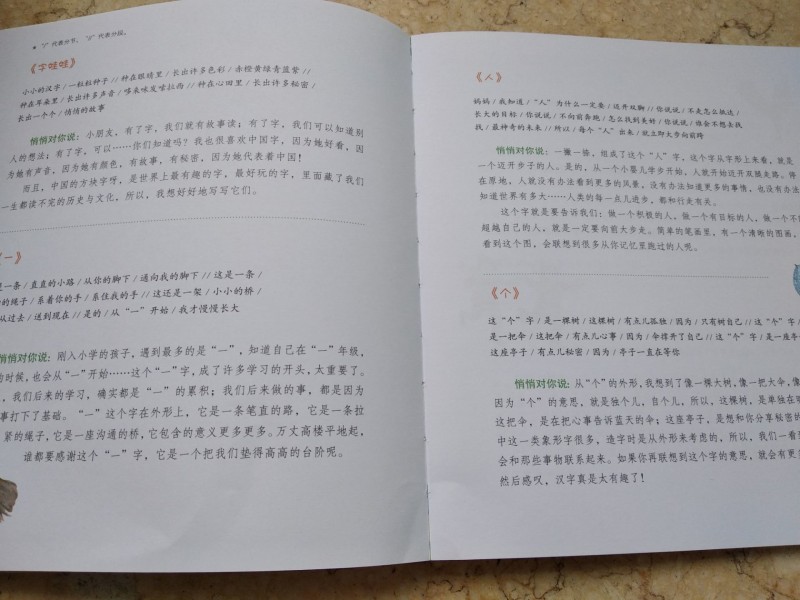 ★ “/” 代表分节，“//” 代表分段。
《字娃娃》
小小的汉字 / 一粒粒种子 // 种在眼睛里 / 长出许多色彩 / 赤橙黄绿青蓝紫 //
种在耳朵里 / 长出许多声音 / 哆来咪发嗦拉西 // 种在心田里 / 长出许多秘密 /
长出一个个 / 悄悄的故事
悄悄对你说：小朋友，有了字，我们就有故事读；有了字，我们可以知道别
人的想法；有了字，可以……你们知道吗？我也很喜欢中国字，因为她好看，因
为她有声音，因为她有颜色，有故事，有秘密，因为她代表着中国！
而且，中国的方块字呀，是世界上最有趣的字，最好玩的字，里面藏了我们
一生都读不完的历史与文化，所以，我想好好地写写它们。
《一》
是一条 / 直直的小路 / 从你的脚下 / 通向我的脚下 // 这是一条 /
的绳子 / 系着你的手 / 系住我的手 // 这还是一架 / 小小的桥 /
从过去 / 送到现在 // 是的 / 从 “一” 开始 / 我才慢慢长大
悄悄对你说：刚入小学的孩子，遇到最多的是 “一”，知道自己在 “一” 年级，
的时候，也会从 “一” 开始……这个 “一” 字，成了许多学习的开头，太重要了。
，我们后来的学习，确实都是 “一” 的累积；我们后来做的事，都是因为
事打下了基础。“一” 这个字在外形上，它是一条笔直的路，它是一条拉
紧的绳子，它是一座沟通的桥，它包含的意义更多更多。万丈高楼平地起，
谁都要感谢这个 “一” 字，它是一个把我们垫得高高的台阶呢。
《人》
妈妈 / 我知道 / “人” 为什么一定要 / 迈开双脚 // 你说说 / 不走怎么抵达 /
长大的目标 / 你说说 / 不向前奔跑 / 怎么找到美好 / 你说说 / 谁会不想去找
找 / 最神奇的未来 // 所以 / 每个 “人” 出来 / 就立即大步向前跨
悄悄对你说：一撇一捺，组成了这个 “人” 字，这个字从字形上来看，就是
一个迈开步子的人。是的，从一个小婴儿学步开始，人就开始迈开双腿走路。停
在原地，人就没有办法看到更多的风景，没有办法知道更多的事情，也没有办法
知道世界有多大……人类的每一点儿进步，都和行走有关。
这个字就是要告诉我们：做一个积极的人，做一个有目标的人，做一个不
超越自己的人，就是一定要向前大步走。简单的笔画里，有一个清晰的图画，
看到这个图，会联想到很多从你记忆里跑过的人呢。
《个》
这 “个” 字 / 是一棵树 / 这棵树 / 有点儿孤独 / 因为 / 只有树自己 // 这 “个” 字 /
是一把伞 / 这把伞 / 有点儿心事 / 因为 / 伞撑开了自己 // 这 “个” 字 / 是一座亭
这座亭子 / 有点儿秘密 / 因为 / 亭子一直在等你
悄悄对你说：从 “个” 的外形，我想到了像一棵大树，像一把大伞，像
因为 “个” 的意思，就是独个儿，自个儿，所以，这棵树，是单独在
这把伞，是在把心事告诉蓝天的伞；这座亭子，是想和你分享秘密的
中这一类象形字很多，造字时是从外形来考虑的，所以，我们一看到
会和那些事物联系起来。如果你再联想到这个字的意思，就会有更多
然后感叹，汉字真是太有趣了！